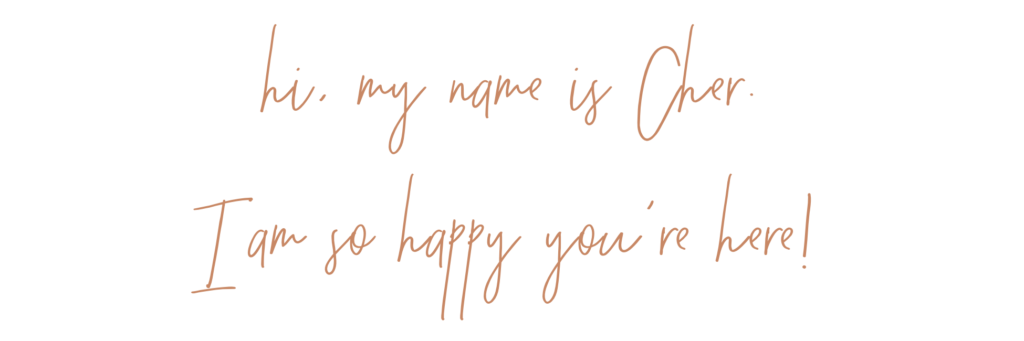 hi, my name is Cher.
I am so happy you're here!